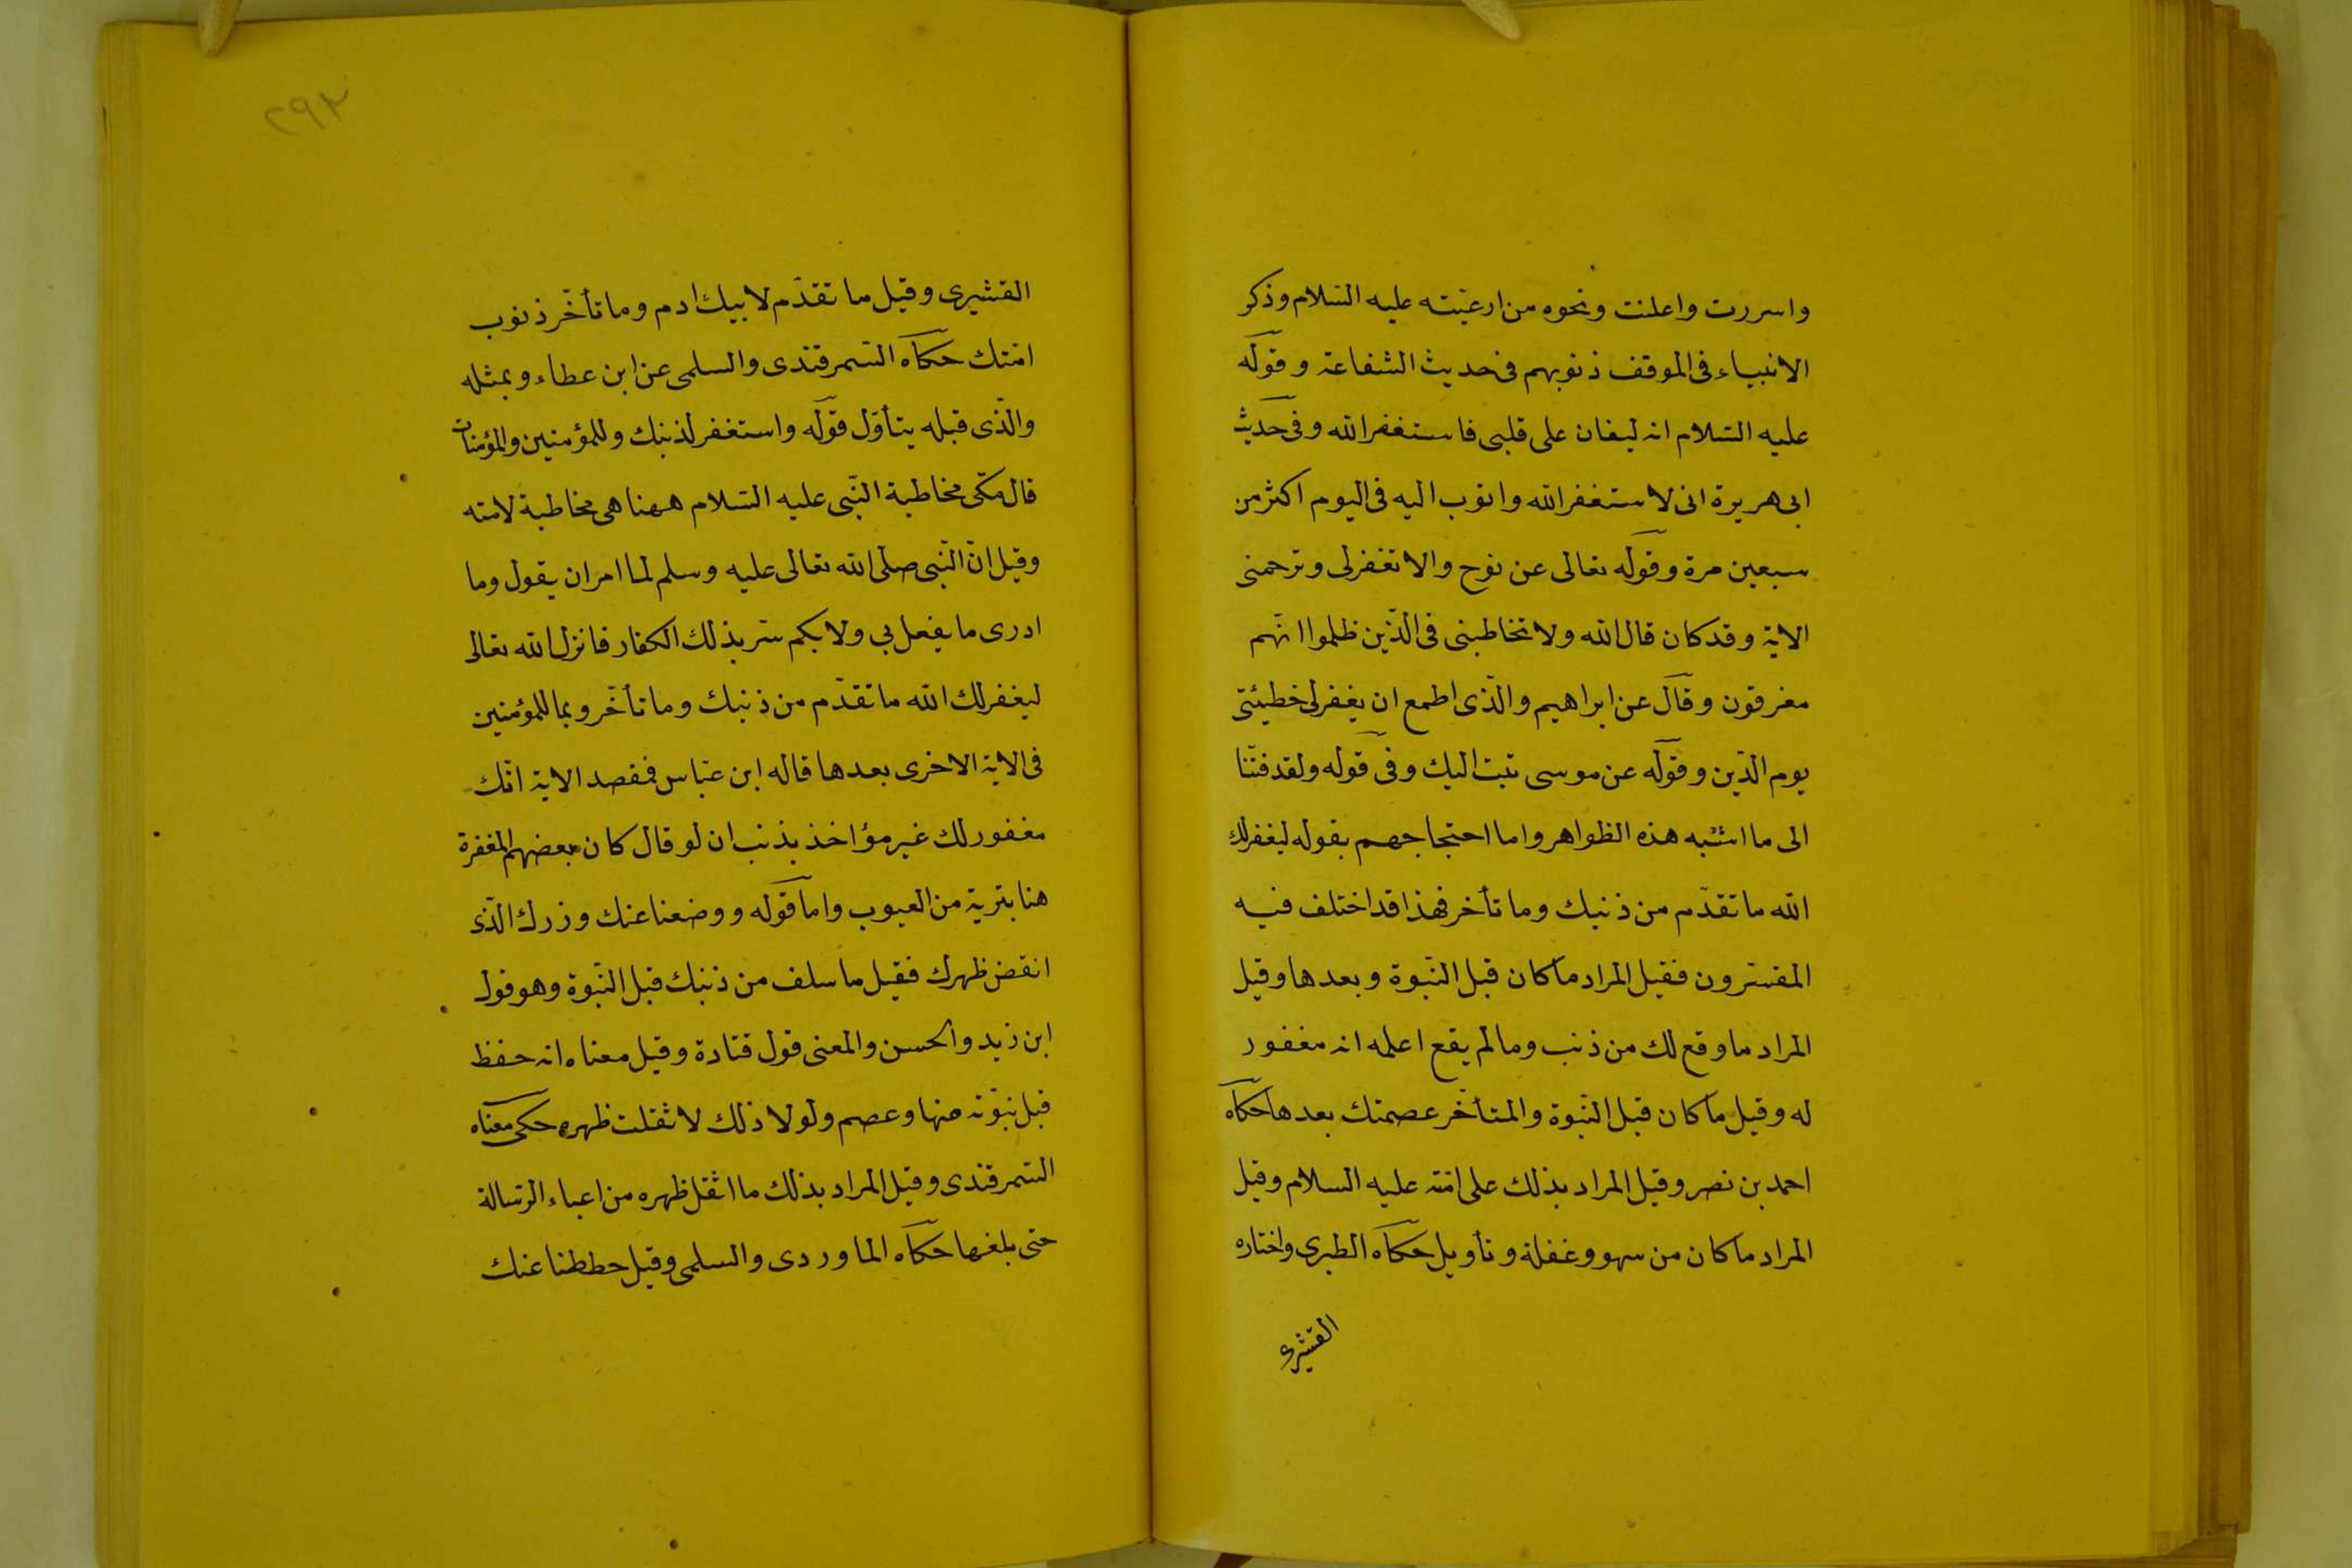 واسررت واعلنت ونحوه من ادعيته عليه السّلام وذكر
الانبياء فى الموقف ذنوبهم فى حديث الشفاعة وقوله
عليه السّلام انه ليغان على قلبى فاستغفر الله وفى حديث
ابى هريرة انى لاستغفر الله واتوب اليه فى اليوم اكثر من
سبعين مرة وقوله تعالى عن نوح والا تغفرلى وترحمنى
الاية وقد كان قال الله ولا تخاطبنى فى الّذين ظلموا انّهم
مغرقون وقال عن ابراهيم والّذى اطمع ان يغفرلى خطيئتى
يوم الدّين وقوله عن موسى تبت اليك وفى قوله ولقد فتنّا
الى ما اشبه هذه الظواهر واما احتجاجهم بقوله ليغفرلك
الله ما تقدّم من ذنبك وما تأخر فهذا قد اختلف فيه
المفسّرون فقيل المراد ما كان قبل النّبوة وبعدها وقيل
المراد ما وقع لك من ذنب وما لم يقع اعلمه انه مغفور
له وقيل ما كان قبل النّبوة والمتأخّر عصمتك بعدها حكاه
احمد بن نصر وقيل المراد بذلك على امّته عليه السلام وقيل
المراد ما كان من سهو وغفلة وتأويل حكاه الطبرى واختاره
القشيرى
٢٩٢
القشيرى وقيل ما تقدّم لابيك ادم وما تأخّر ذنوب
امّتك حكاه السّمرقندى والسلمى عن ابن عطاء وبمثله
والّذى قبله يتأوّل قوله واستغفر لذنبك وللمؤمنين والمؤمنات
قال مكّى مخاطبة النّبى عليه السّلام ههنا هى مخاطبة لامته
وقيل انّ النّبى صلّى الله تعالى عليه وسلم لما امر ان يقول وما
ادرى ما يفعل بي ولا بكم سرّ بذلك الكفار فانزل الله تعالى
ليغفرلك الله ما تقدّم من ذنبك وما تأخّر وبما للمؤمنين
فى الاية الاخرى بعدها قاله ابن عبّاس فمقصد الاية انّك
مغفور لك غير مؤاخذ بذنب ان لو قال كان بعضهم المغفرة
هنا بترية من العيوب واما قوله ووضعنا عنك وزرك الّذى
انقض ظهرك فقيل ما سلف من ذنبك قبل النّبوة وهو قول
ابن زيد والحسن والمعنى قول قتادة وقيل معناه انه حفظ
قبل نبوّته منها وعصم ولولا ذلك لاثقلت ظهره حكى معناه
السّمرقندى وقيل المراد بذلك ما اثقل ظهره من اعباء الرّسالة
حتى بلغها حكاه الماوردى والسلمى وقيل حططنا عنك